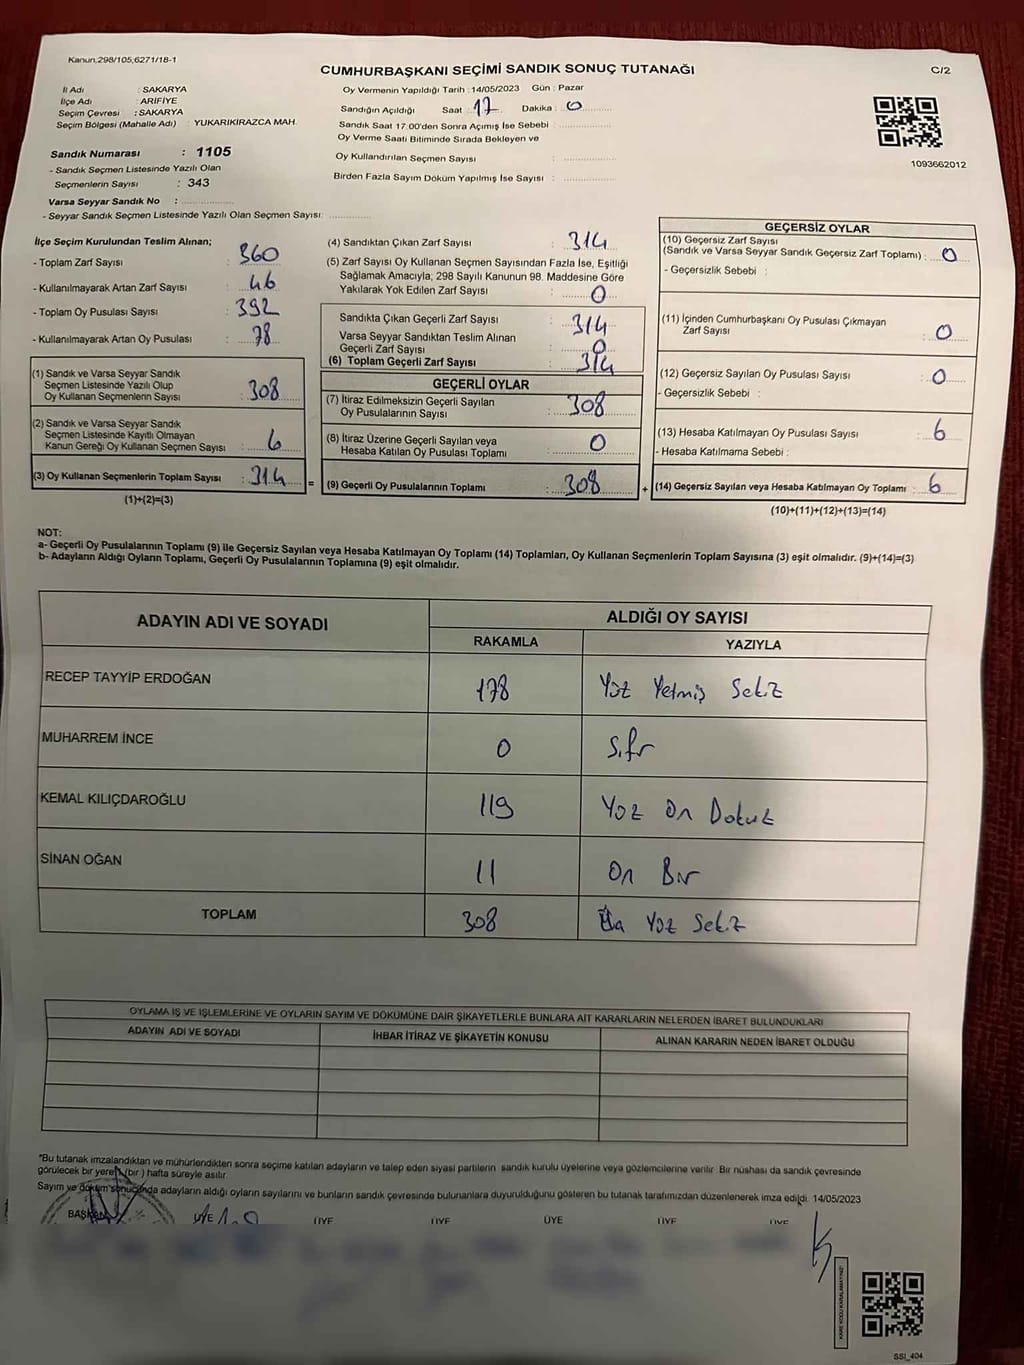 Kanun,298/105,6271/18-1
CUMHURBAŞKANI SEÇİMİ SANDIK SONUÇ TUTANAĞI
C/2
İl Adı : SAKARYA
İlçe Adı : ARİFİYE
Seçim Çevresi : SAKARYA
Seçim Bölgesi (Mahalle Adı) : YUKARIKİRAZCA MAH.
Oy Vermenin Yapıldığı Tarih :14/05/2023 Gün : Pazar
Sandığın Açıldığı Saat : 17 Dakika : 0
Sandık Saat 17.00'den Sonra Açımış İse Sebebi :
Oy Verme Saati Bitiminde Sırada Bekleyen ve
Oy Kullandırılan Seçmen Sayısı :
Birden Fazla Sayım Döküm Yapılmış İse Sayısı :
1093662012
Sandık Numarası : 1105
- Sandık Seçmen Listesinde Yazılı Olan
Seçmenlerin Sayısı : 343
Varsa Seyyar Sandık No :
- Seyyar Sandık Seçmen Listesinde Yazılı Olan Seçmen Sayısı:
İlçe Seçim Kurulundan Teslim Alınan;
- Toplam Zarf Sayısı : 360
- Kullanılmayarak Artan Zarf Sayısı : 46
- Toplam Oy Pusulası Sayısı : 392
- Kullanılmayarak Artan Oy Pusulası : 78
(1) Sandık ve Varsa Seyyar Sandık
Seçmen Listesinde Yazılı Olup
Oy Kullanan Seçmenlerin Sayısı : 308
(2) Sandık ve Varsa Seyyar Sandık
Seçmen Listesinde Kayıtlı Olmayan
Kanun Gereği Oy Kullanan Seçmen Sayısı : 6
(3) Oy Kullanan Seçmenlerin Toplam Sayısı : 314
(1)+(2)=(3)
(4) Sandıktan Çıkan Zarf Sayısı : 314
(5) Zarf Sayısı Oy Kullanan Seçmen Sayısından Fazla İse, Eşitliği
Sağlamak Amacıyla; 298 Sayılı Kanunun 98. Maddesine Göre
Yakılarak Yok Edilen Zarf Sayısı : 0
Sandıkta Çıkan Geçerli Zarf Sayısı : 314
Varsa Seyyar Sandıktan Teslim Alınan
Geçerli Zarf Sayısı : 0
(6) Toplam Geçerli Zarf Sayısı : 314
GEÇERLİ OYLAR
(7) İtiraz Edilmeksizin Geçerli Sayılan
Oy Pusulalarının Sayısı : 308
(8) İtiraz Üzerine Geçerli Sayılan veya
Hesaba Katılan Oy Pusulası Toplamı : 0
= (9) Geçerli Oy Pusulalarının Toplamı : 308
GEÇERSİZ OYLAR
(10) Geçersiz Zarf Sayısı
(Sandık ve Varsa Seyyar Sandık Geçersiz Zarf Toplamı) : 0
- Geçersizlik Sebebi :
(11) İçinden Cumhurbaşkanı Oy Pusulası Çıkmayan
Zarf Sayısı : 0
(12) Geçersiz Sayılan Oy Pusulası Sayısı : 0
- Geçersizlik Sebebi :
(13) Hesaba Katılmayan Oy Pusulası Sayısı : 6
- Hesaba Katılmama Sebebi :
+ (14) Geçersiz Sayılan veya Hesaba Katılmayan Oy Toplamı : 6
(10)+(11)+(12)+(13)=(14)
NOT:
a- Geçerli Oy Pusulalarının Toplamı (9) ile Geçersiz Sayılan veya Hesaba Katılmayan Oy Toplamı (14) Toplamları, Oy Kullanan Seçmenlerin Toplam Sayısına (3) eşit olmalıdır. (9)+(14)=(3)
b- Adayların Aldığı Oyların Toplamı, Geçerli Oy Pusulalarının Toplamına (9) eşit olmalıdır.
ADAYIN ADI VE SOYADI ALDIĞI OY SAYISI
RAKAMLA YAZIYLA
RECEP TAYYİP ERDOĞAN 178 Yüz Yetmiş Sekiz
MUHARREM İNCE 0 Sıfır
KEMAL KILIÇDAROĞLU 119 Yüz On Dokuz
SİNAN OĞAN 11 On Bir
TOPLAM 308 Üç Yüz Sekiz
OYLAMA İŞ VE İŞLEMLERİNE VE OYLARIN SAYIM VE DÖKÜMÜNE DAİR ŞİKAYETLERLE BUNLARA AİT KARARLARIN NELERDEN İBARET BULUNDUKLARI
ADAYIN ADI VE SOYADI İHBAR İTİRAZ VE ŞİKAYETİN KONUSU ALINAN KARARIN NEDEN İBARET OLDUĞU
"Bu tutanak imzalandıktan ve mühürlendikten sonra seçime katılan adayların ve talep eden siyasi partilerin sandık kurulu üyelerine veya gözlemcilerine verilir. Bir nüshası da sandık çevresinde
görülecek bir yere (bir ) hafta süreyle asılır.
Sayım ve döküm sonucunda adayların aldığı oyların sayılarını ve bunların sandık çevresinde bulunanlara duyurulduğunu gösteren bu tutanak tarafımızdan düzenlenerek imza edildi. 14/05/2023
BAŞKAN ÜYE ÜYE ÜYE ÜYE ÜYE ÜYE
KARE KODU KARALAMAYINIZ!
SSI_404